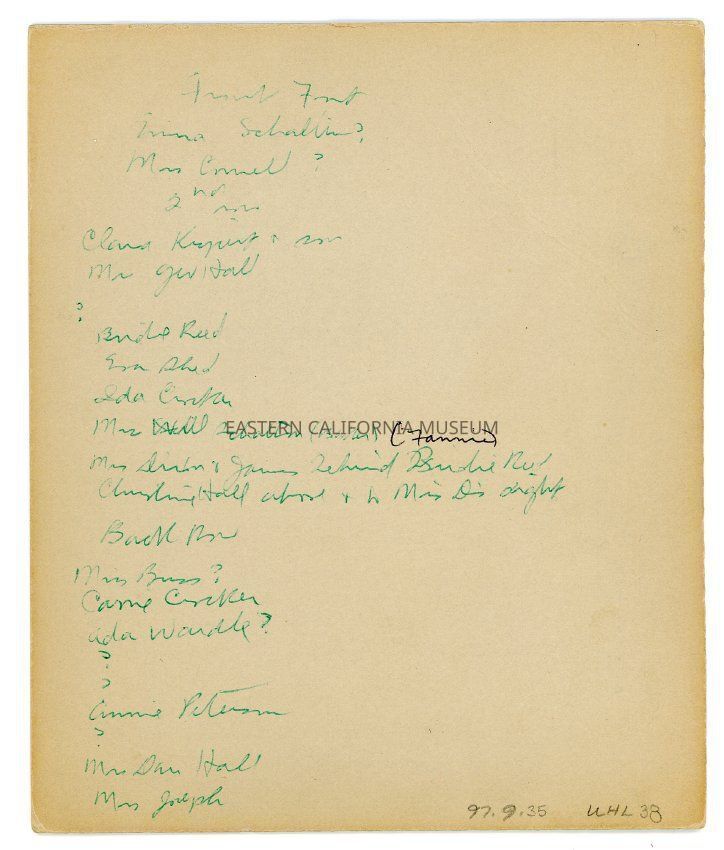 Front Front
Anna Schallin?
Mrs Connell ?
2nd row
Clara Kispert & son
Mrs Geo Hall
?
Birdie Reed
Eva Shed
Ida Crocker
Mrs Will EASTERN CALIFORNIA MUSEUM (Fannie)
Mrs Dixon & James behind Birdie Reed
Christine Hall above & to Mrs D's right
Back Row
Miss Buss?
Carrie Crocker
Ada Wardle?
?
?
Annie Peterson
?
Mrs Dan Hall
Mrs Joseph
97.9.35 UHL 38